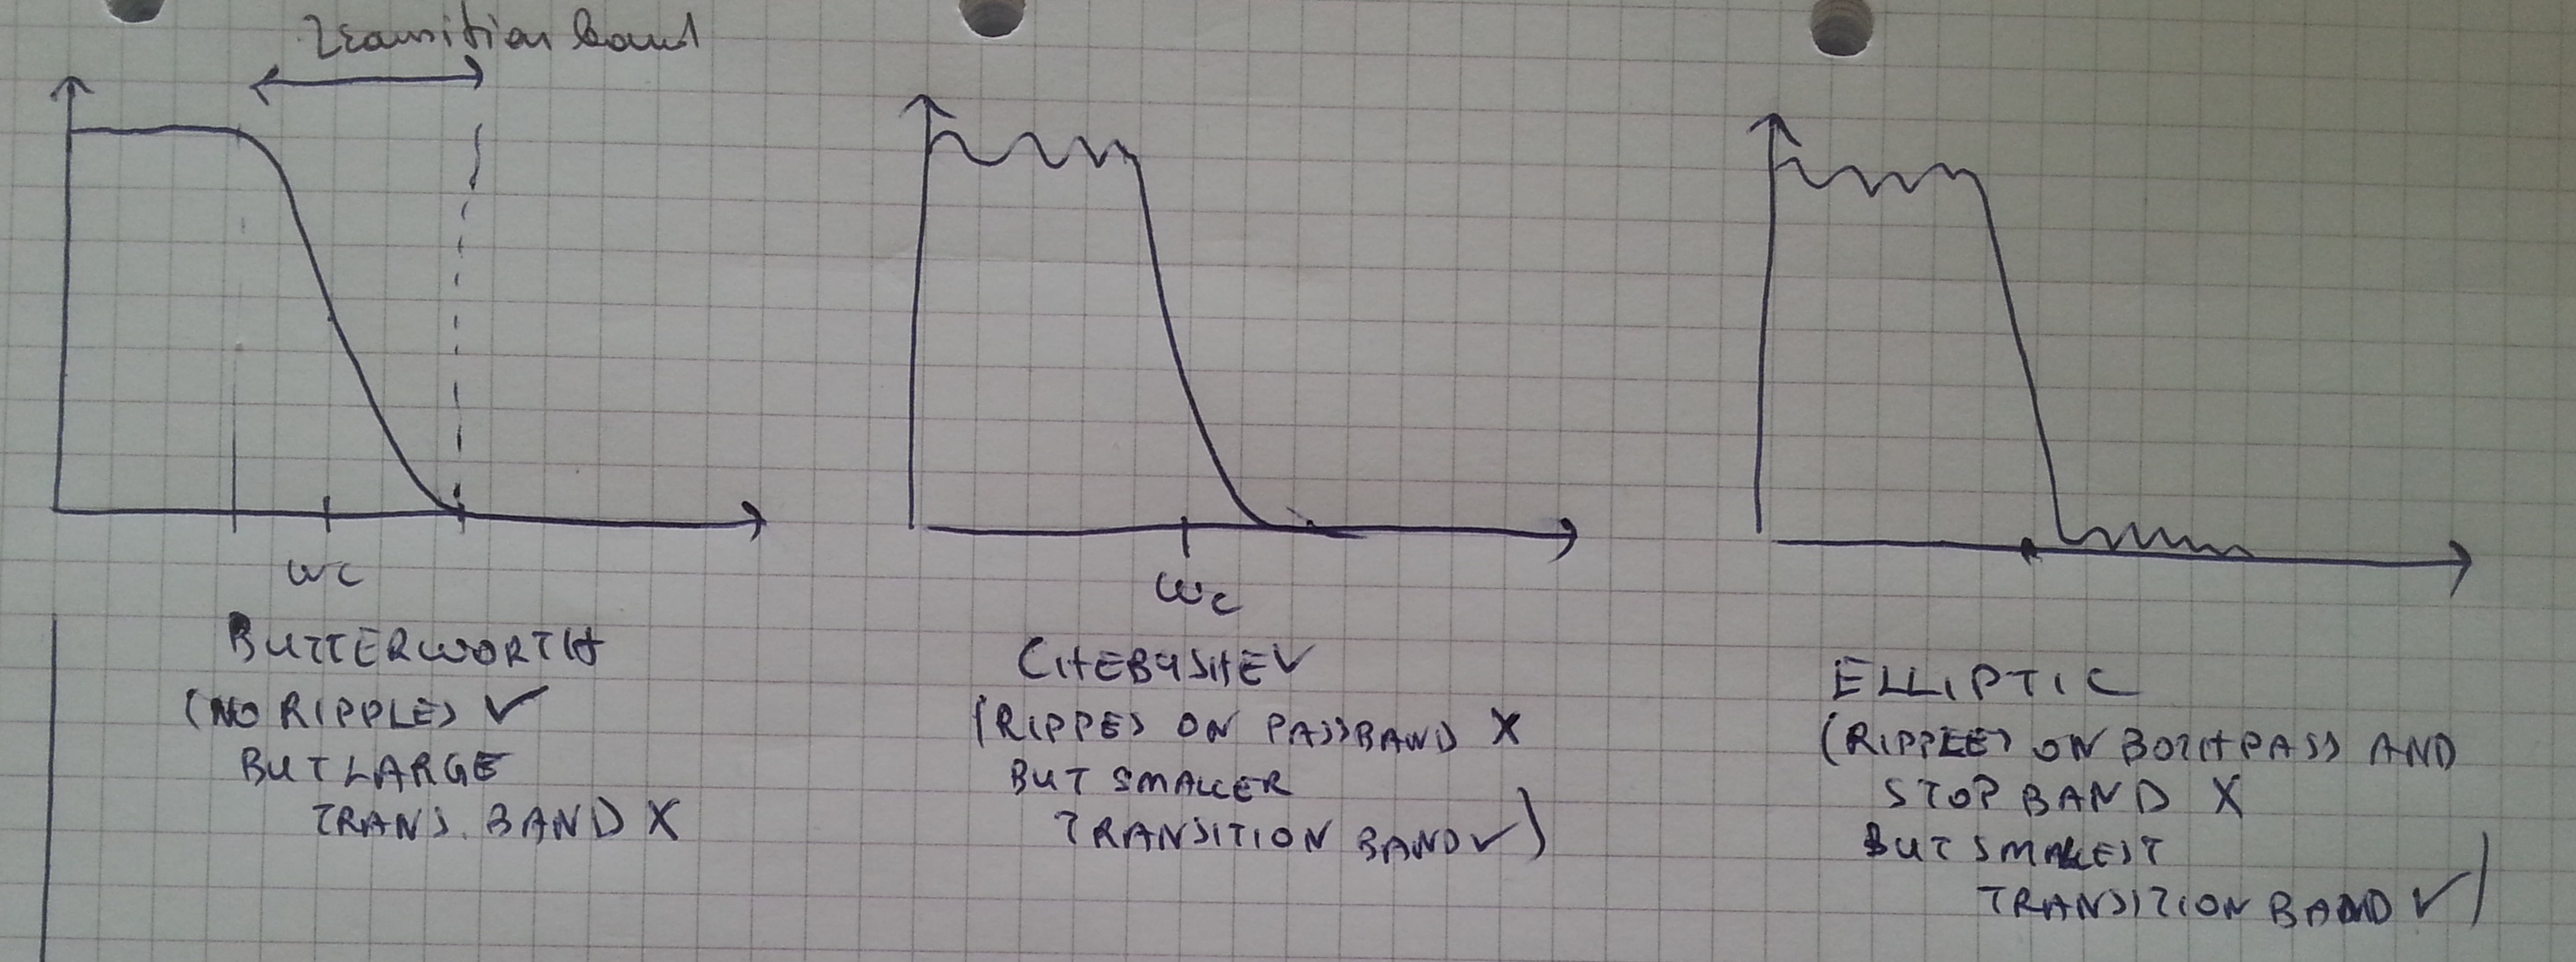 transition band
wc
BUTTERWORTH
(NO RIPPLES ✓
BUT LARGE
TRANS. BAND X
wc
CHEBYSHEV
(RIPPES ON PASSBAND X
BUT SMALLER
TRANSITION BAND ✓)
ELLIPTIC
(RIPPLES ON BOTH PASS AND
STOP BAND X
BUT SMALLEST
TRANSITION BAND ✓)